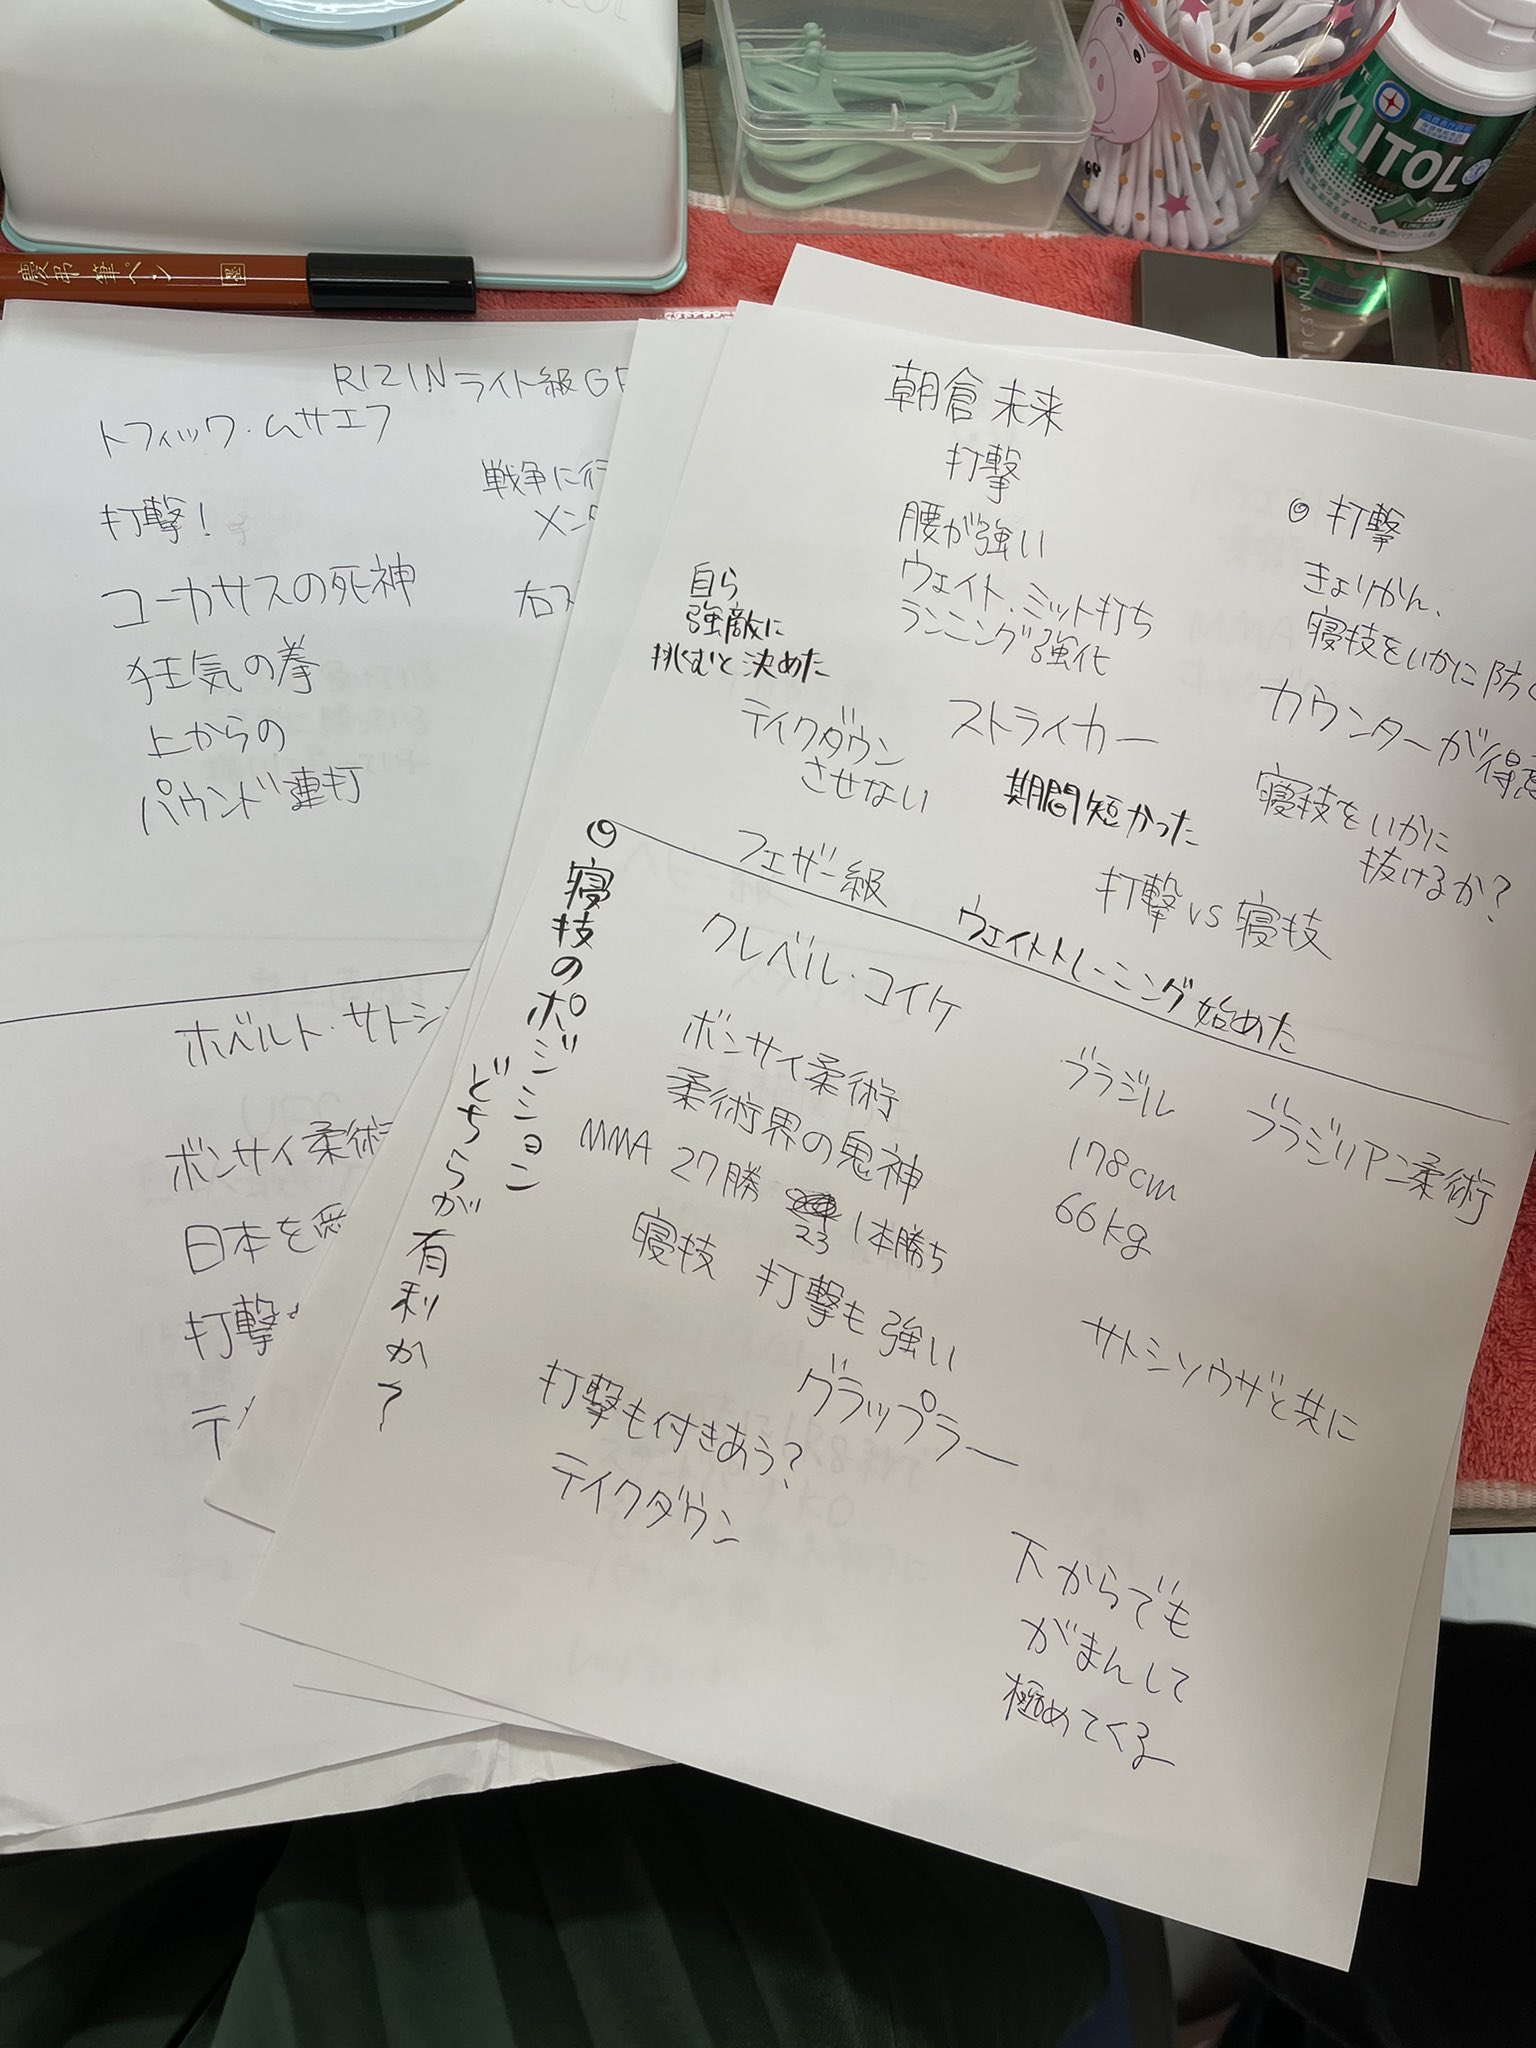 慶弔筆ペン
墨
XYLITOL
LIME MINT
LUNASOL
RIZINライト級G
トフィック・ムサエフ
打撃!
コーカサスの死神
狂気の拳
上からの
パウンド連打
戦争に行
メン
右ス
ホベルト・サトシ
ボンサイ柔術
日本を愛
打撃も
テイ
朝倉未来
打撃
腰が強い
ウェイト、ミット打ち
ランニング強化
自ら
強敵に
挑むと決めた
ストライカー
テイクダウン
させない
期間短かった
フェザー級
◎打撃
きょりかん、
寝技をいかに防ぐ
カウンターが得意
寝技をいかに
抜けるか?
打撃vs寝技
ウェイトトレーニング始めた
◎寝技のポジション
どちらが有利か?
クレベル・コイケ
ボンサイ柔術
柔術界の鬼神
MMA 27勝 23 1本勝ち
寝技 打撃も強い
グラップラー
打撃も付きあう?
テイクダウン
ブラジル
178cm
66kg
ブラジリアン柔術
サトシソウザと共に
下からでも
がまんして
極めてくる